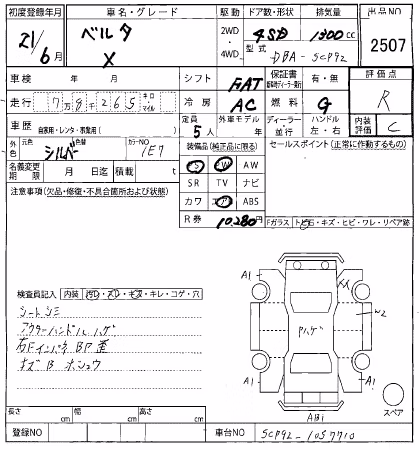 初度登録年月 車名・グレード 駆動 ドア数・形状 排気量 出品NO
21/6月 ベルタ X 2WD・4WD 4SD 1300cc 2507
型式 DBA-SCP92
車検 年 月 シフト FAT 保証書 有・無 評価点
走行 7万8千265 キロ・マイル 冷房 AC 燃料 G R
車歴 自家用・レンタ・事業用( ) 定員 5人 外車モデル 年 ディーラー・並行 ハンドル 左・右 内装評価 C
外色 元色 シルバー 色替 カラーNO 1E7 装備品(純正品に限る) セールスポイント(正常に作動するもの)
PS PW AW
名義変更期限 月 日迄 積載 t SR TV ナビ
注意事項(欠品・修復・不具合箇所および状態) カワ エアB ABS
R券 10,280円 Fガラス トビ石・キズ・ヒビ・ワレ・リペア跡
検査員記入 内装 汚ロ・スレ・キズ・キレ・コゲ・穴
シートシミ
アウターハンドルハゲ
右Fインパネ BP歪
キズB ホシュウ
A1
W2
Pハゲ
A1
A1
AB1
スペア
長さ cm 幅 cm 高さ cm
登録NO 車台NO SCP92-1057710